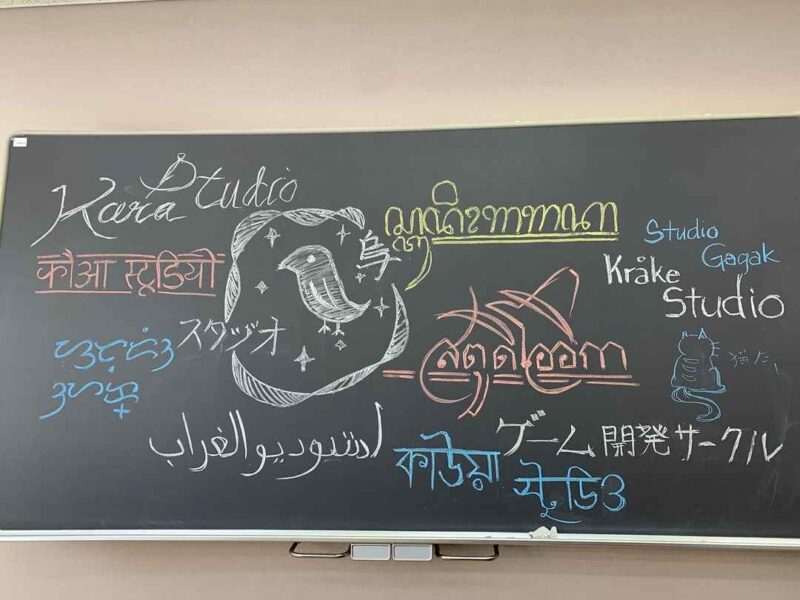 Kara Studio
कौआ स्टूडियो
スタジオ
烏
สตูดิโออีกา
Studio
Gagak
Kråke
Studio
猫だ!
استوديو الغراب
কাউয়া
স্টুডিও
ゲーム開発サークル